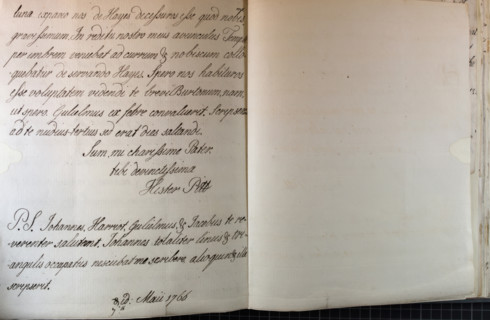 luna expavo nos de Hayes decessuros esse quod nobis
gravissimum. In reditu nostro meus avunculus
per imbrem veniebat ad currum & nobiscum collo
quebatur de servando Hayes. Spero nos habituros
esse voluptatem videndi te brevi Burtonum,
ut spero. Gulielmus ex febre convaluerit. Scripsi
ad te nudius-tertius sed erat dies saltandi.
Sum, mi charissime Pater,
tibi devinctissima
Hister Pitt
P.S. Johannes, Harriot, Gulialmus, & Jacobus te re
verenter salutant. Johannes totaliter linus &
angulis occupatus nesciebat me scribere, alioquin & ille
scripserit.
Maii 1766